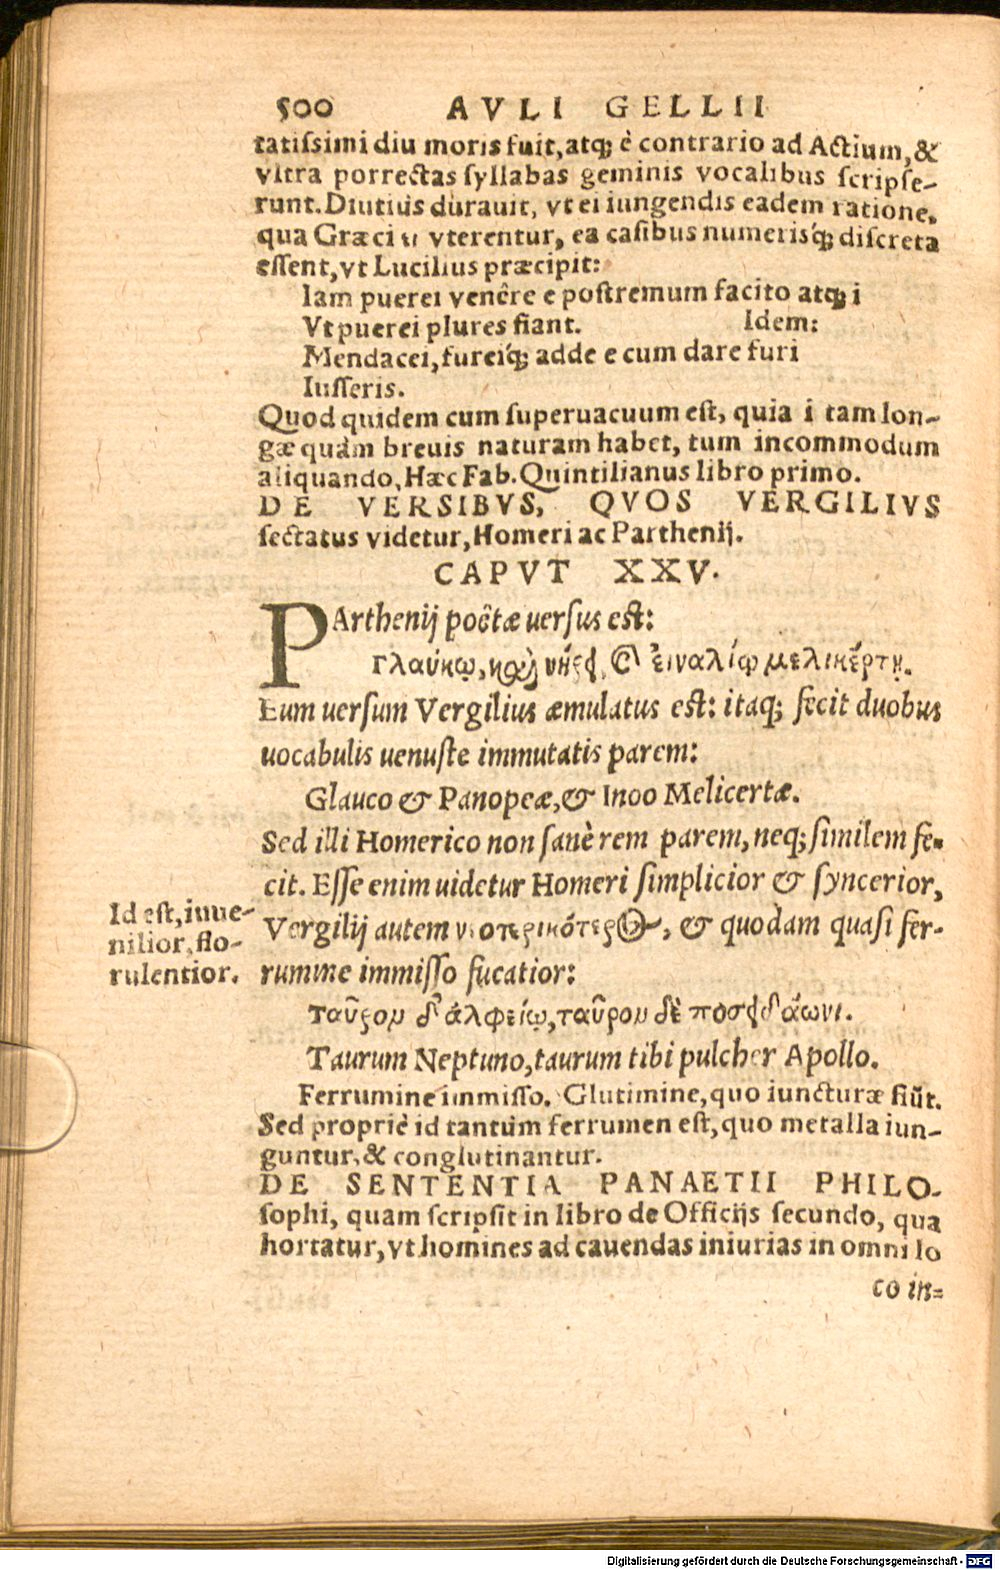 500 AVLI GELLII
tatissimi diu moris fuit, atq; è contrario ad Actium, &
vltra porrectas syllabas geminis vocalibus scripse-
runt. Diutius durauit, vt ei iungendis eadem ratione,
qua Græci ει vterentur, ea casibus numerisq́; discreta
essent, vt Lucilius præcipit:
Iam puerei venêre e postremum facito atq; i
Vt puerei plures fiant. Idem:
Mendacei, fureiq́; adde e cum dare furi
Iusseris.
Quod quidem cum superuacuum est, quia i tam lon-
gæ quàm breuis naturam habet, tum incommodum
aliquando, Hæc Fab. Quintilianus libro primo.
DE VERSIBVS, QVOS VERGILIVS
sectatus videtur, Homeri ac Parthenij.
CAPVT XXV.
PArthenij poëtæ uersus est:
Γλαύκῳ, καὶ νηρεῖ, καὶ εἰναλίῳ μελικέρτῃ.
Eum uersum Vergilius æmulatus est: itaq; fecit duobus
uocabulis uenuste immutatis parem:
Glauco & Panopeæ, & Inoo Melicertæ.
Sed illi Homerico non sanè rem parem, neq; similem fe-
cit. Esse enim uidetur Homeri simplicior & syncerior,
Vergilij autem νεοτερικότερος, & quodam quasi fer-
rumine immisso fucatior:
Id est, iuue-
nilior, flo-
rulentior.
Ταῦρον δ' ἀλφείῳ, ταῦρον δὲ ποσειδάωνι.
Taurum Neptuno, taurum tibi pulcher Apollo.
Ferrumine immisso. Glutimine, quo iuncturæ fiūt.
Sed propriè id tantùm ferrumen est, quo metalla iun-
guntur, & conglutinantur.
DE SENTENTIA PANAETII PHILO-
sophi, quam scripsit in libro de Officijs secundo, qua
hortatur, vt homines ad cauendas iniurias in omni lo
co in-
Digitalisierung gefördert durch die Deutsche Forschungsgemeinschaft - DFG